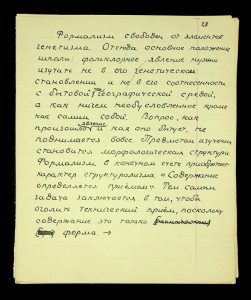 28
Формализм свободен от элементов
генетизма. Отсюда основное положение
школы: фольклорное явление нужно
изучать не в его генетическом
становлении и не в его соотнесенности
с бытовой географической средой,
а как ничем необусловленное кроме
как самим собой. Вопрос, как
явление
произошло и как оно бытует, не
поднимается вовсе. Предметом изучения
становится морфологическая структура.
Формализм в конечном счете приобретает
характер структурализма. „Содержание
определяется приёмом". Тем самым
задача заключается в том, чтобы
оголить технический приём, поскольку
содержание это только
форма. →